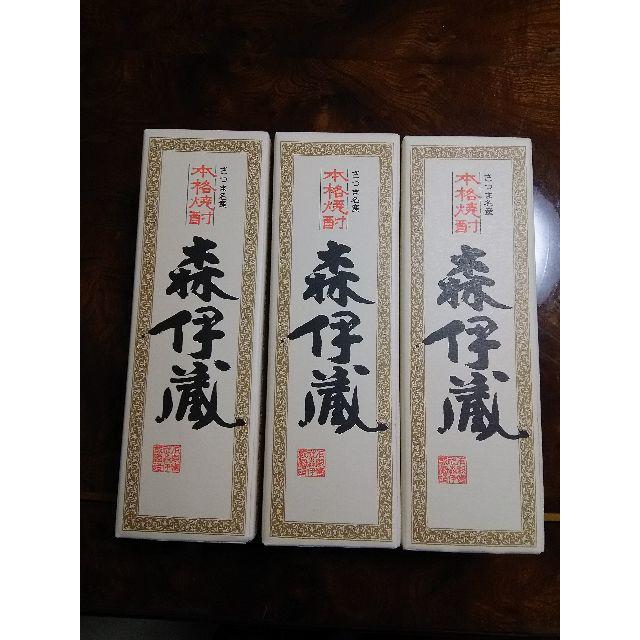 さつま名産
本格焼酎
森伊蔵
さつま名産
本格焼酎
森伊蔵
さつま名産
本格焼酎
森伊蔵